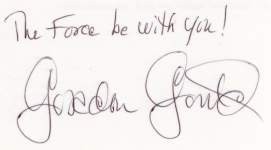 The Force be with you!
Gordon